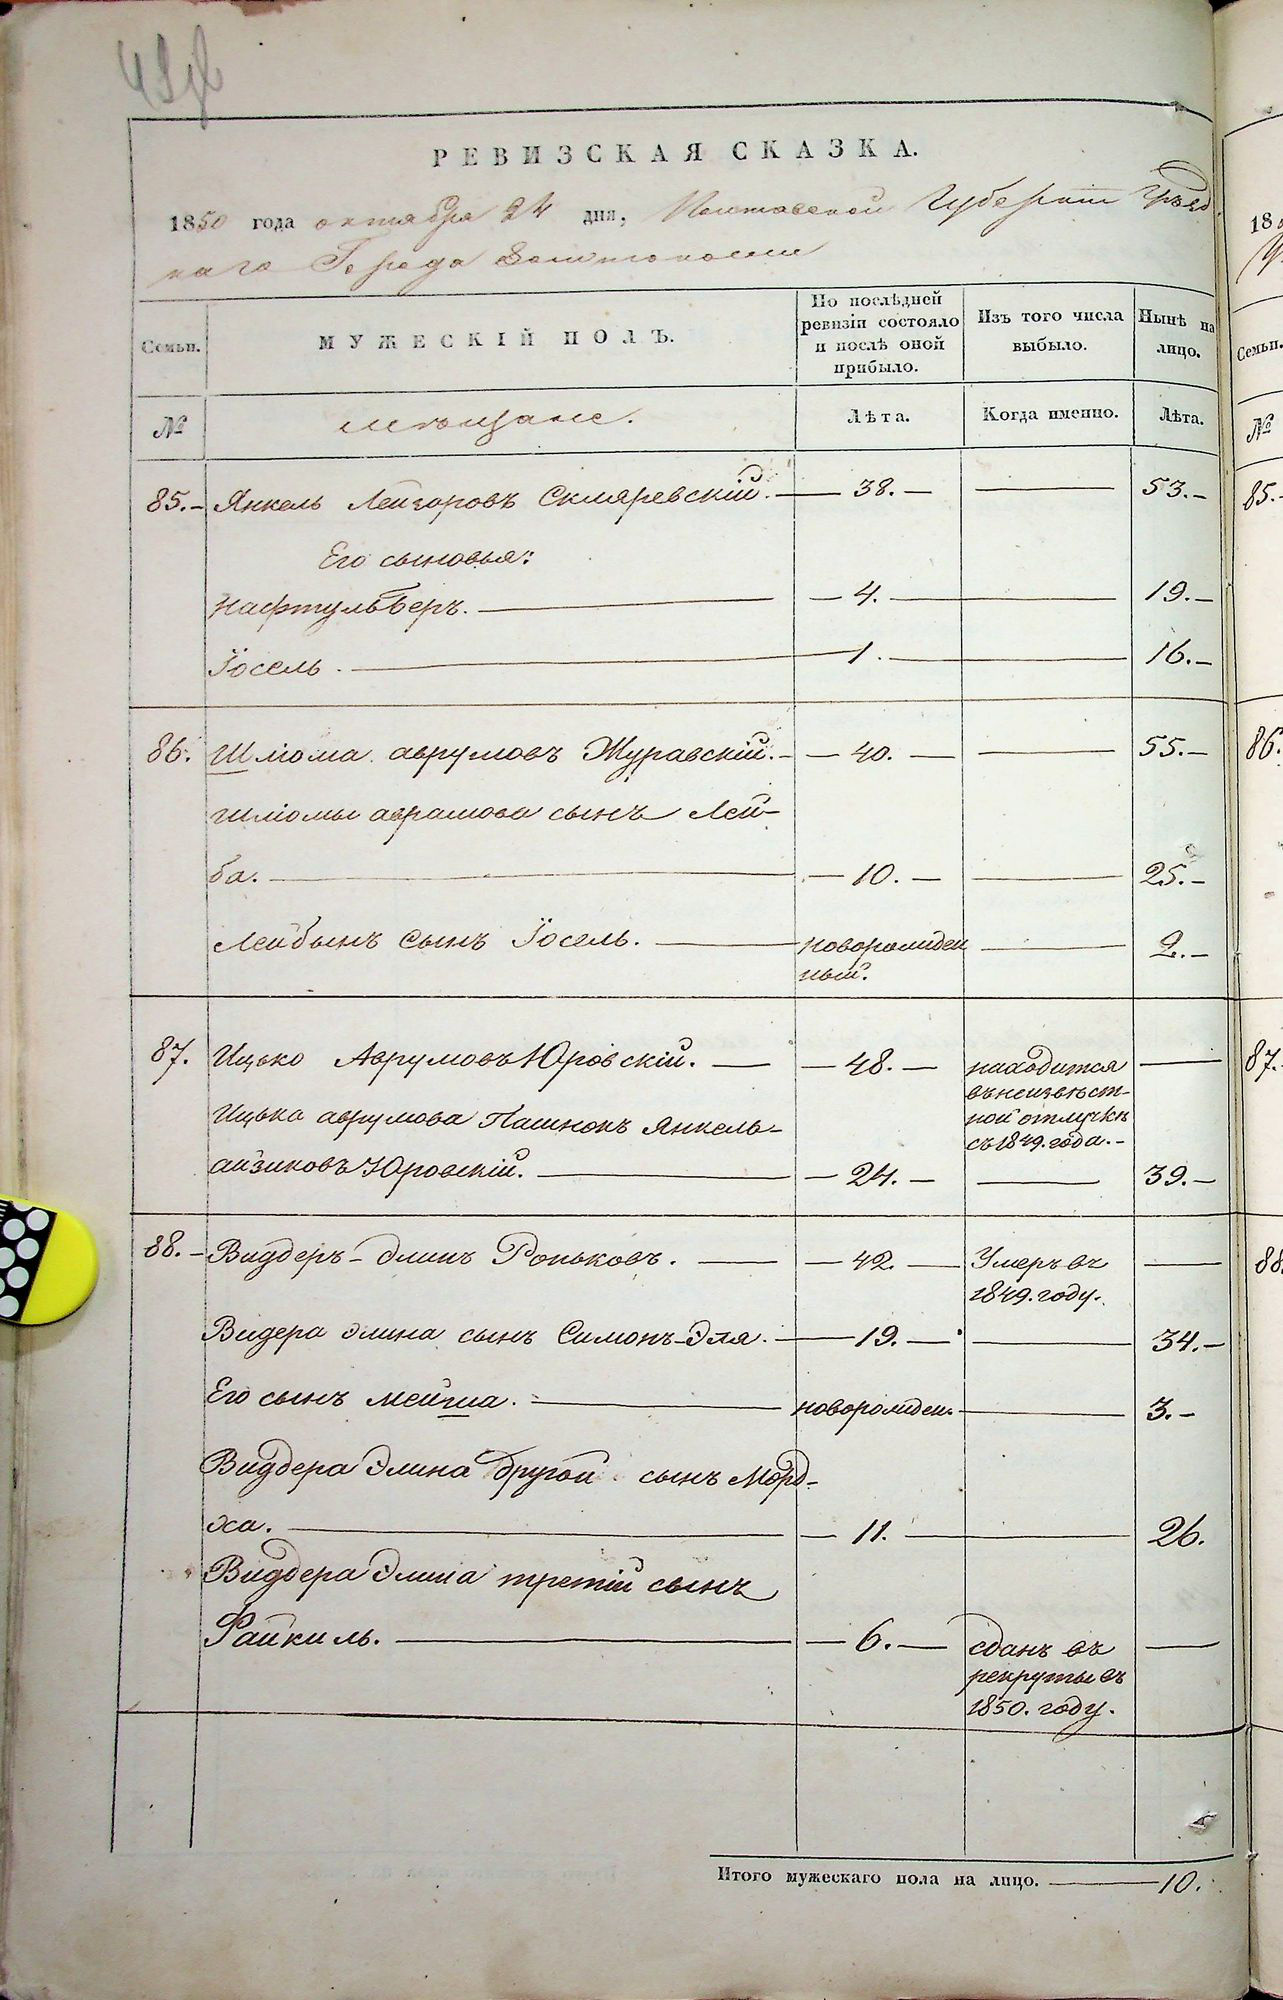 РЕВИЗСКАЯ СКАЗКА.
1850 года октября 24 дня, Полтавской Губерніи Уѣзд
наго Города Золотоноши
Семьи.
МУЖЕСКІЙ ПОЛЪ.
По послѣдней
ревизіи состояло
и послѣ оной
прибыло.
Изъ того числа
выбыло.
Нынѣ на
лицо.
№
Мѣщане.
Лѣта.
Когда именно.
Лѣта.
85. Янкель Лейзоровъ Скляревскій. 38. 53.
Его сыновья:
Нафтульберъ. 4. 19.
Іосель. 1. 16.
86. Шліома Аврумовъ Журавскій. 40. 55.
Шліомы Аврамова сынъ Лей-
ба. 10. 25.
Лейбынъ Сынъ Іосель. новорожден 2.
ный.
87. Ицько Аврумовъ Юровскій. 48. находится
въ неизвѣст-
ной отлучкѣ
съ 1849. года.
Ицька Аврумова Пасынокъ Янкель-
Айзиковъ Юровскій. 24. 39.
88. Видберъ-Элинъ Роньковъ. 42. Умеръ въ
1849. году.
Видера Элина сынъ Симонъ-Эля. 19. 34.
Его сынъ Мейша. новорожден. 3.
Видбера Элина другой сынъ Морд-
ха. 11. 26.
Видбера Элина третій сынъ
Файкиль. 6. сданъ въ
рекруты въ
1850. году.
Итого мужескаго пола на лицо. 10.
18
Семьи.
№
85.
86.
87.
88.